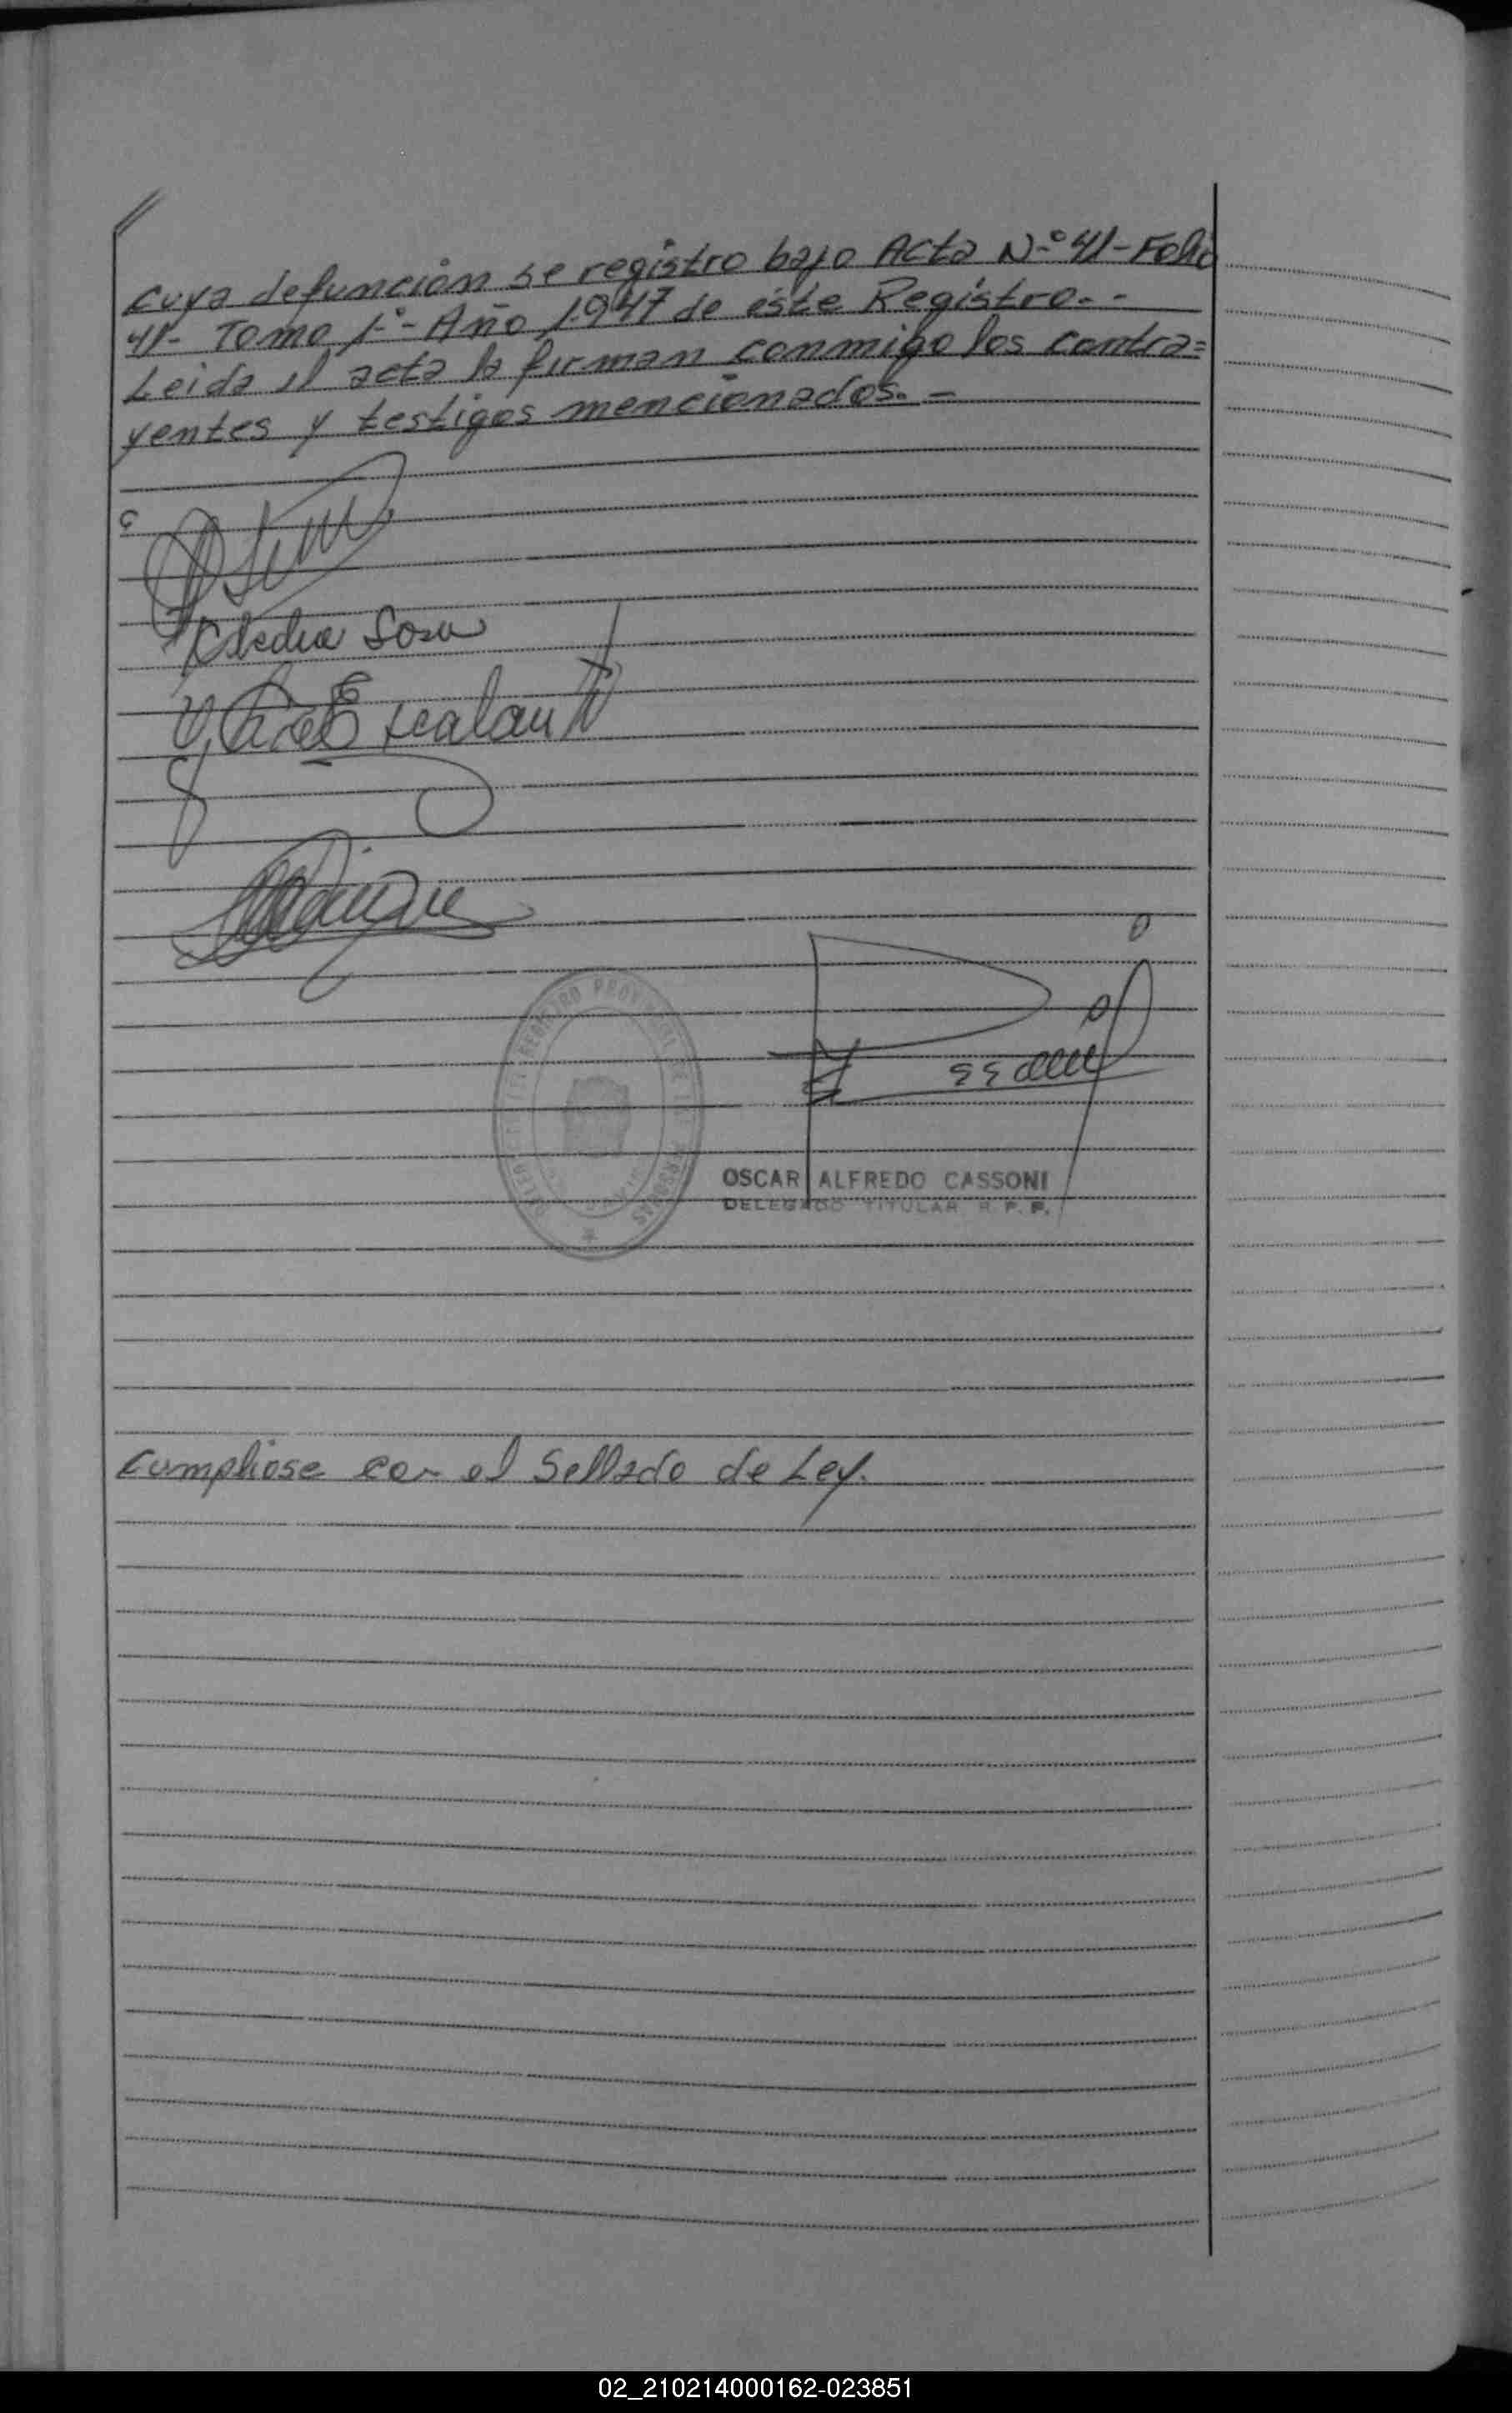 cuya defunción se registro bajo Acta N-° 41-Folio
41- Tomo 1-°- Año 1.947 de éste Registro.-
Leida el acta la firman conmigo los contra=
yentes y testigos mencionados.-
Sosa
OSCAR ALFREDO CASSONI
DELEGADO TITULAR R. P. P.
Cumpliose con el Sellado de Ley.
02_210214000162-023851